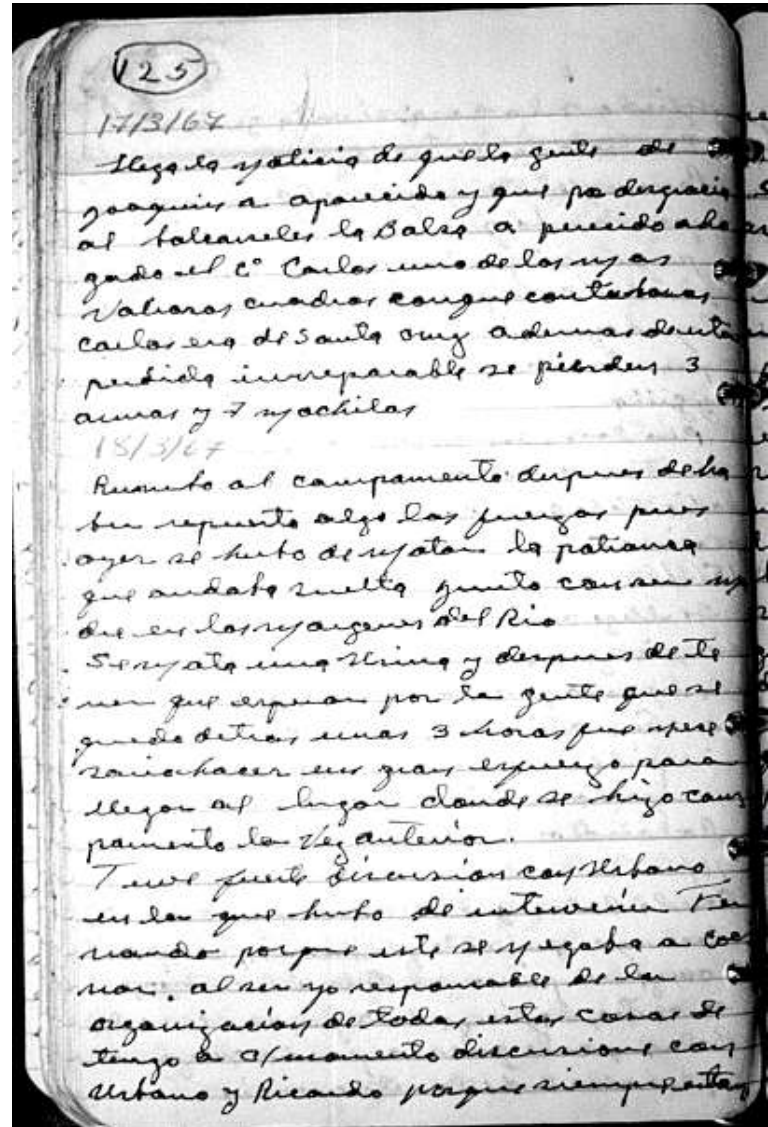 125
17/3/67
Llega la noticia de que la gente de
Joaquin a aparecido y que por desgracia
al balcarceles la Balsa a perecido aho
gado el Cº Carlos uno de los mas
Valiosos cuadros conque contabamos
Carlos era de Santa cruz ademas de esta
perdida irreparable se pierden 3
armas y 7 mochilas
18/3/67
Rumbo al campamento despues de ha
ber repuesto algo las fuerzas pues
ayer se hubo de matar la potranca
que andaba suelta junto con su ma
dre en los margenes del Rio
Se mata una Urina y despues de te
ner que esperar por la gente que se
quedo detras unas 3 horas fue nece
sario hacer un gran esfuerzo para
llegar al lugar donde se hizo cam
pamento la Vez anterior.
Tuve fuerte discusion con Urbano
en la que hubo de intervenir Fer
nando porque este se negaba a coci
nar. al ser yo responsable de la
organizacion de todas estas cosas
tengo a c/momento discusiones con
Urbano y Ricardo porque siempre estan